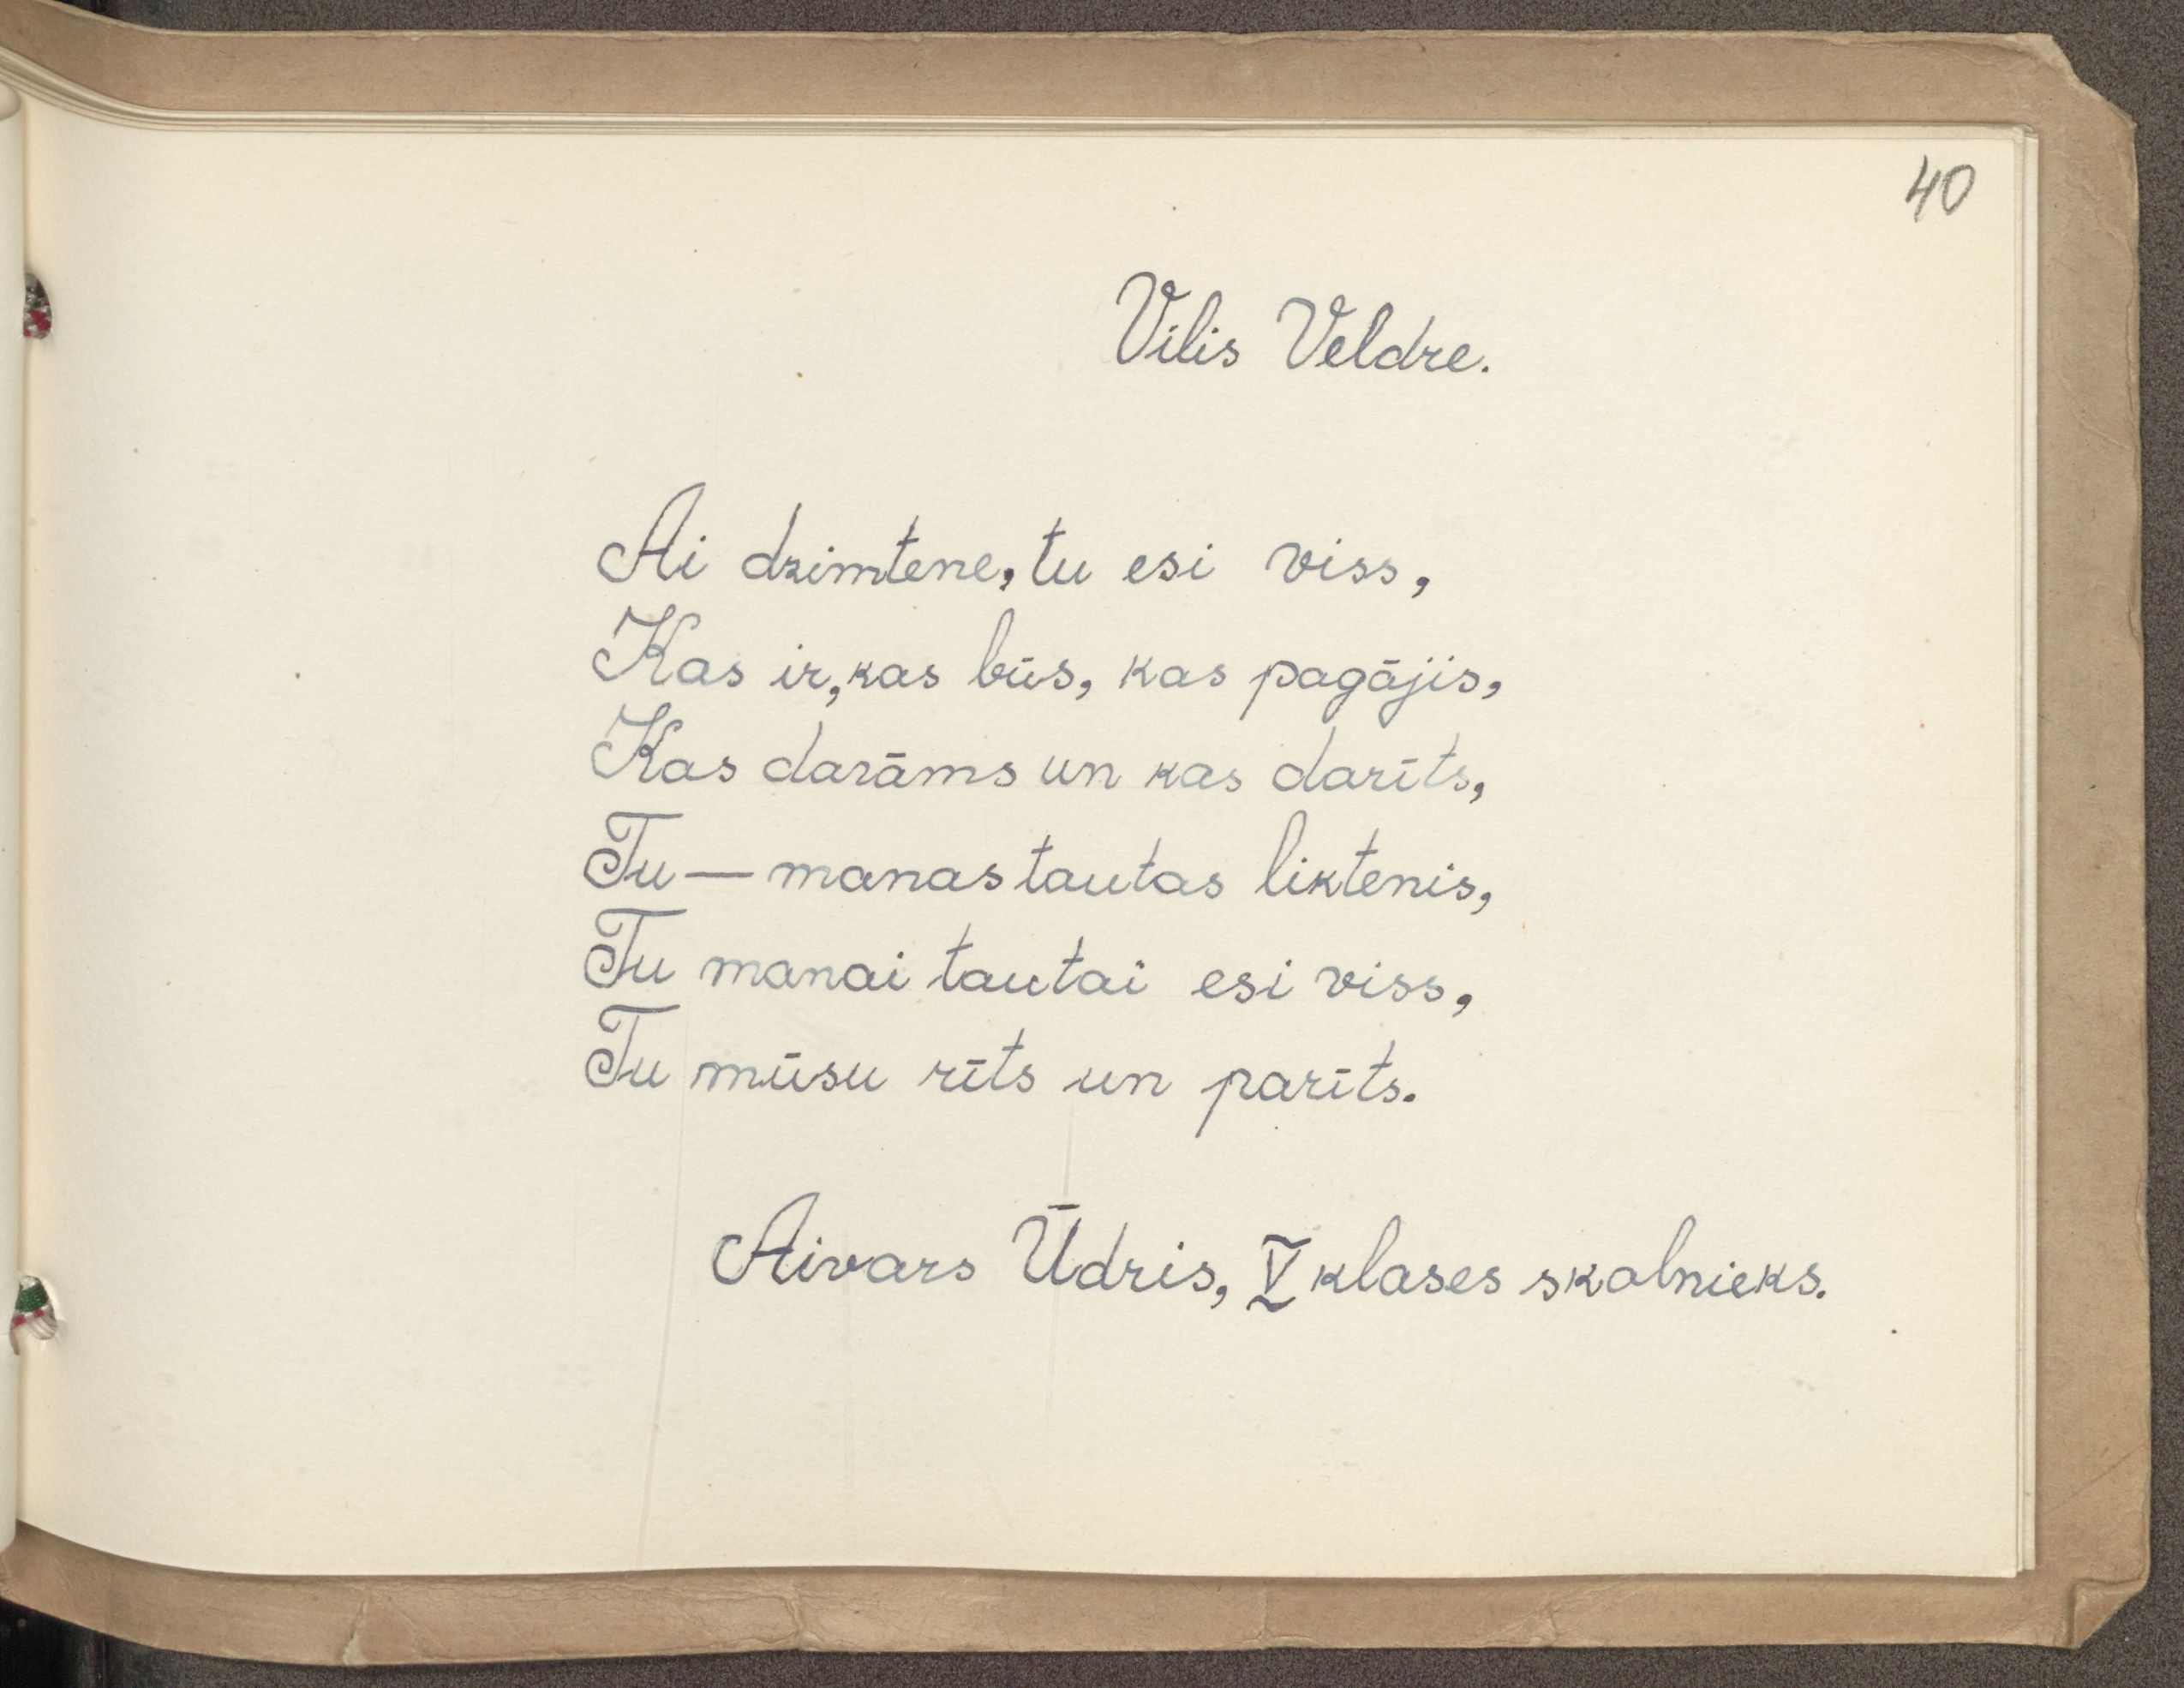 40
Vilis Veldre.
Ai dzimtene, tu esi viss,
Kas ir, kas būs, kas pagājis,
Kas darāms un kas darīts,
Tu — manas tautas liktenis,
Tu manai tautai esi viss,
Tu mūsu rīts un parīts.
Aivars Ūdris, V klases skolnieks.